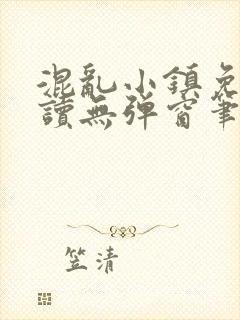 混亂小鎮免
讀無彈窗筆
笠清